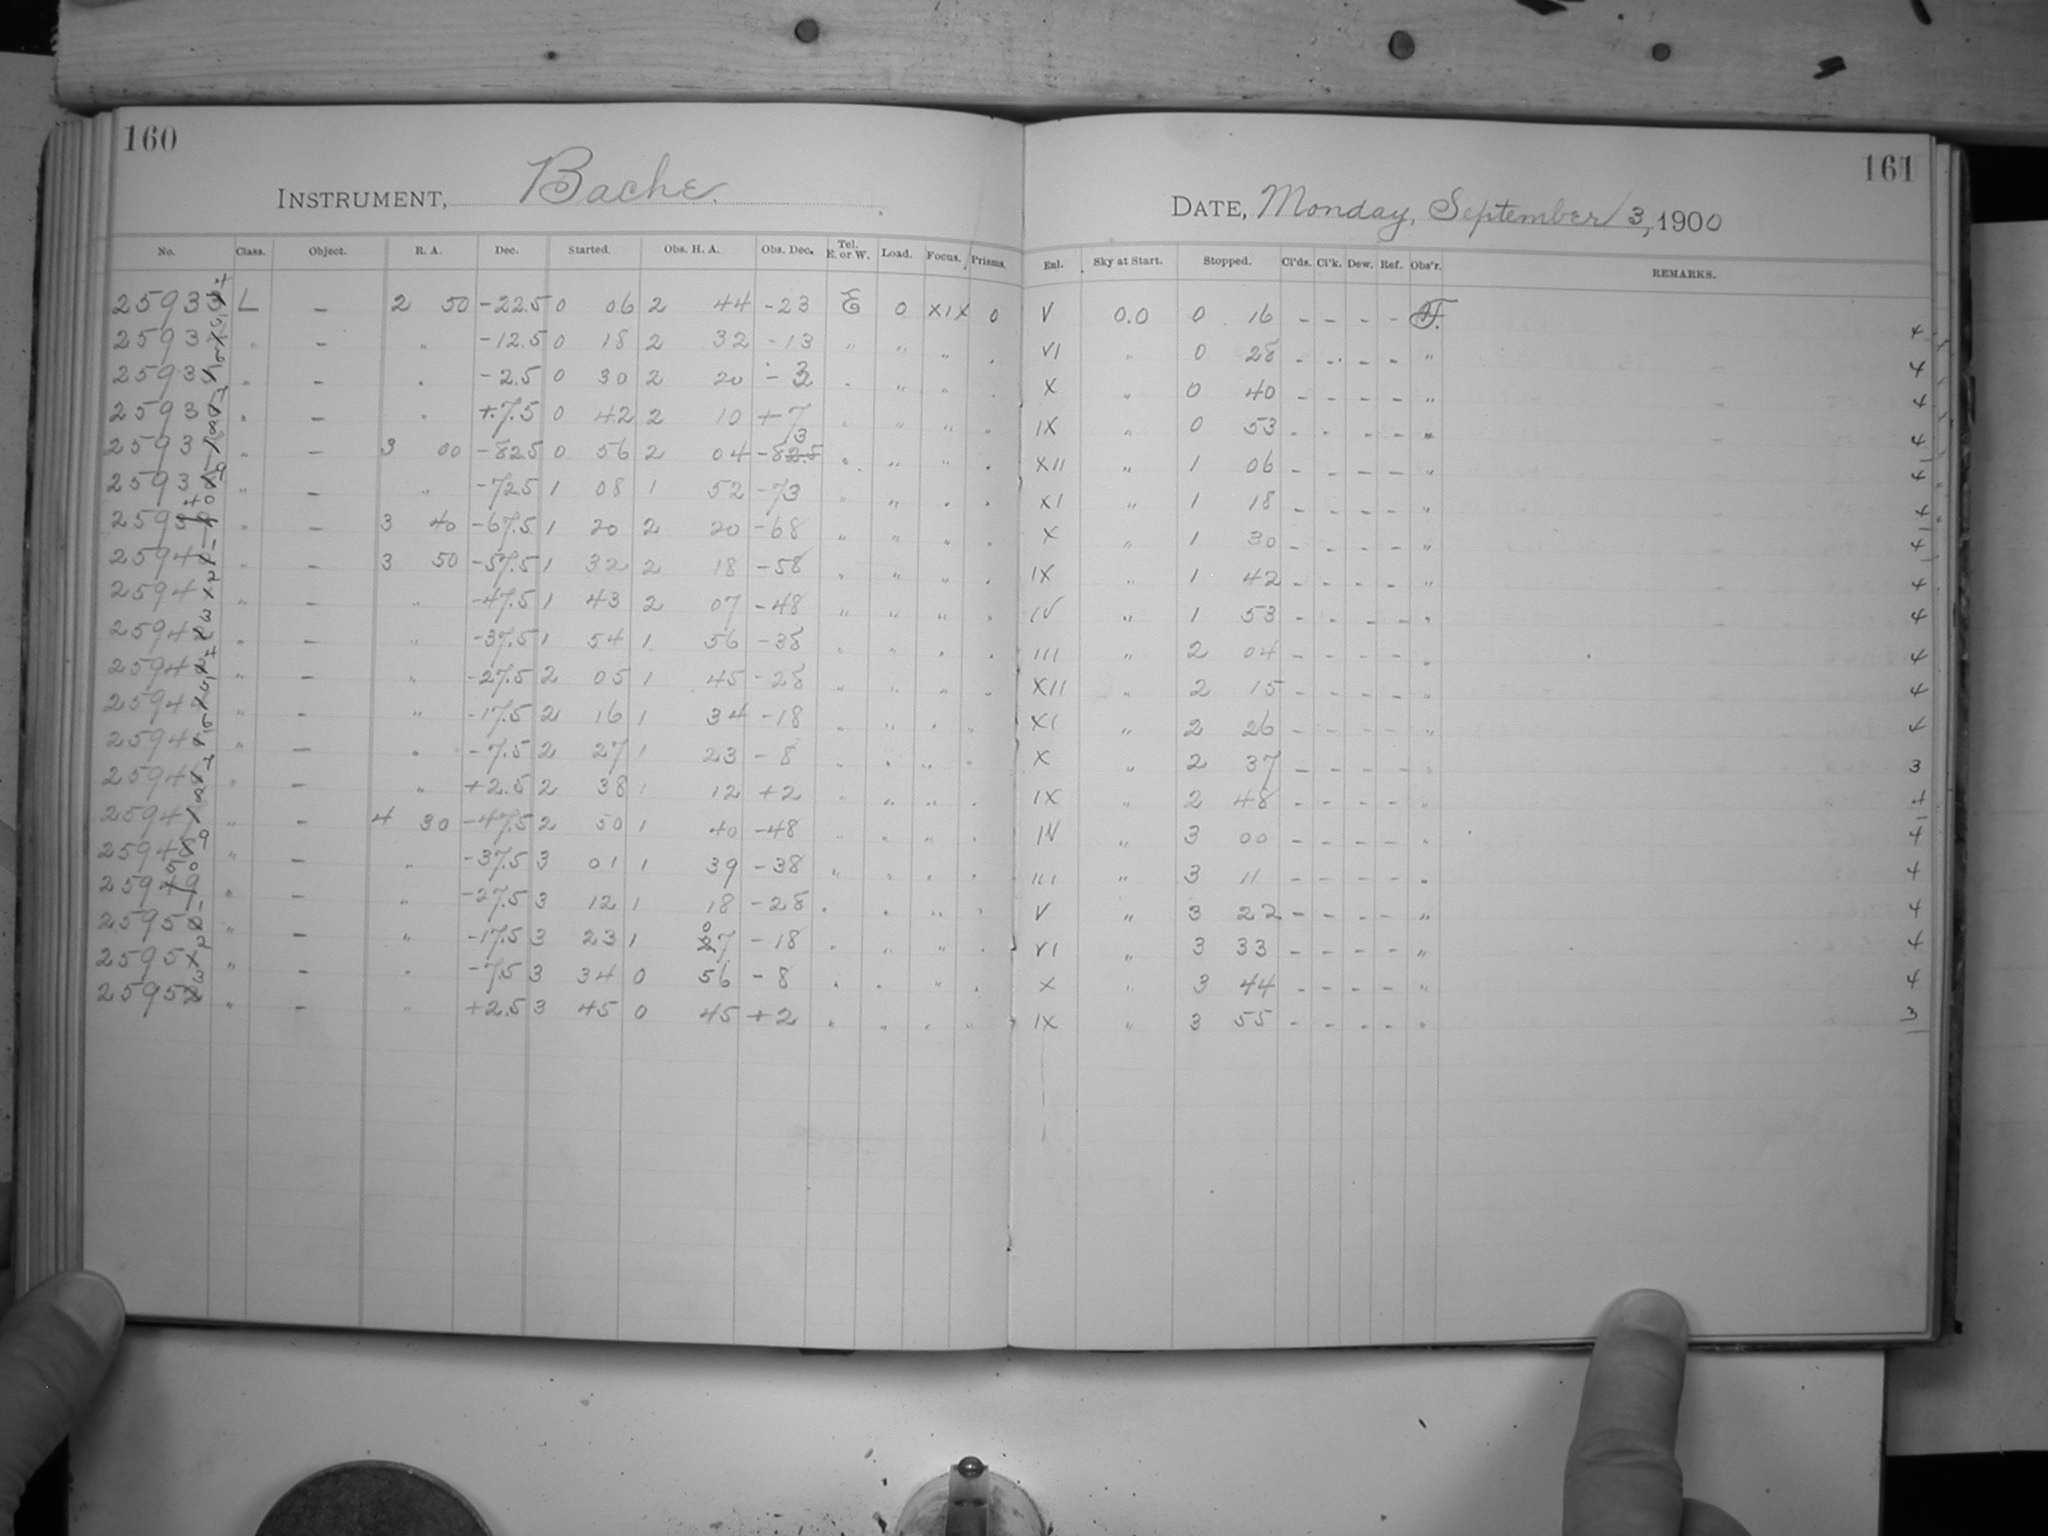 160
161
INSTRUMENT, Bache.
DATE, Monday, September 3, 1900
No. Class. Object. R. A. Dec. Started. Obs. H. A. Obs. Dec. Tel. E. or W. Load. Focus. Prisms. Enl. Sky at Start. Stopped. Cl'ds. Cl'k. Dew. Ref. Obs'r. REMARKS.
2593 L — 2 50 -22.5 0 06 2 44 -23 E 0 XIX 0 V 0.0 0 16 - - - -
2593 " — " -12.5 0 18 2 32 -13 " " " . VI " 0 28 - - - - " 4
2593 " — " -2.5 0 30 2 20 -3 " " " . X " 0 40 - - - - " 4
2593 " — " +7.5 0 42 2 10 +7 " " " " IX " 0 53 - - - - " 4
2593 " — 3 00 -82.5 0 56 2 04 -83 " " " . XII " 1 06 - - - - " 4
2593 " — " -72.5 1 08 1 52 -73 " " . . XI " 1 18 - - - - " 4
259 " — 3 40 -67.5 1 20 2 20 -68 " " " . X " 1 30 - - - - " 4
2594 " — 3 50 -57.5 1 32 2 18 -58 " " " . IX " 1 42 - - - - " 4
2594 " — " -47.5 1 43 2 07 -48 " " " " IV " 1 53 - - - - " 4
2594 " — " -37.5 1 54 1 56 -38 " " . . III " 2 04 - - - - " 4
2594 " — " -27.5 2 05 1 45 -28 " " " " XII " 2 15 - - - - " 4
2594 " — " -17.5 2 16 1 34 -18 " " " " XI " 2 26 - - - - " 4
2594 " — " -7.5 2 27 1 23 -8 " " " " X " 2 37 - - - - " 3
2594 " — " +2.5 2 38 1 12 +2 " " " " IX " 2 48 - - - - " 4
2594 " — 4 30 -47.5 2 50 1 40 -48 " " " . IV " 3 00 - - - - " 4
2594 " — " -37.5 3 01 1 39 -38 " " " . III " 3 11 - - - - " 4
259 " — " -27.5 3 12 1 18 -28 . . " " V " 3 22 - - - - " 4
2595 " — " -17.5 3 23 1 07 -18 " " " . VI " 3 33 - - - - " 4
2595 " — " -7.5 3 34 0 56 -8 . . " . X " 3 44 - - - - " 4
2595 " — " +2.5 3 45 0 45 +2 " " " " IX " 3 55 - - - - " 3